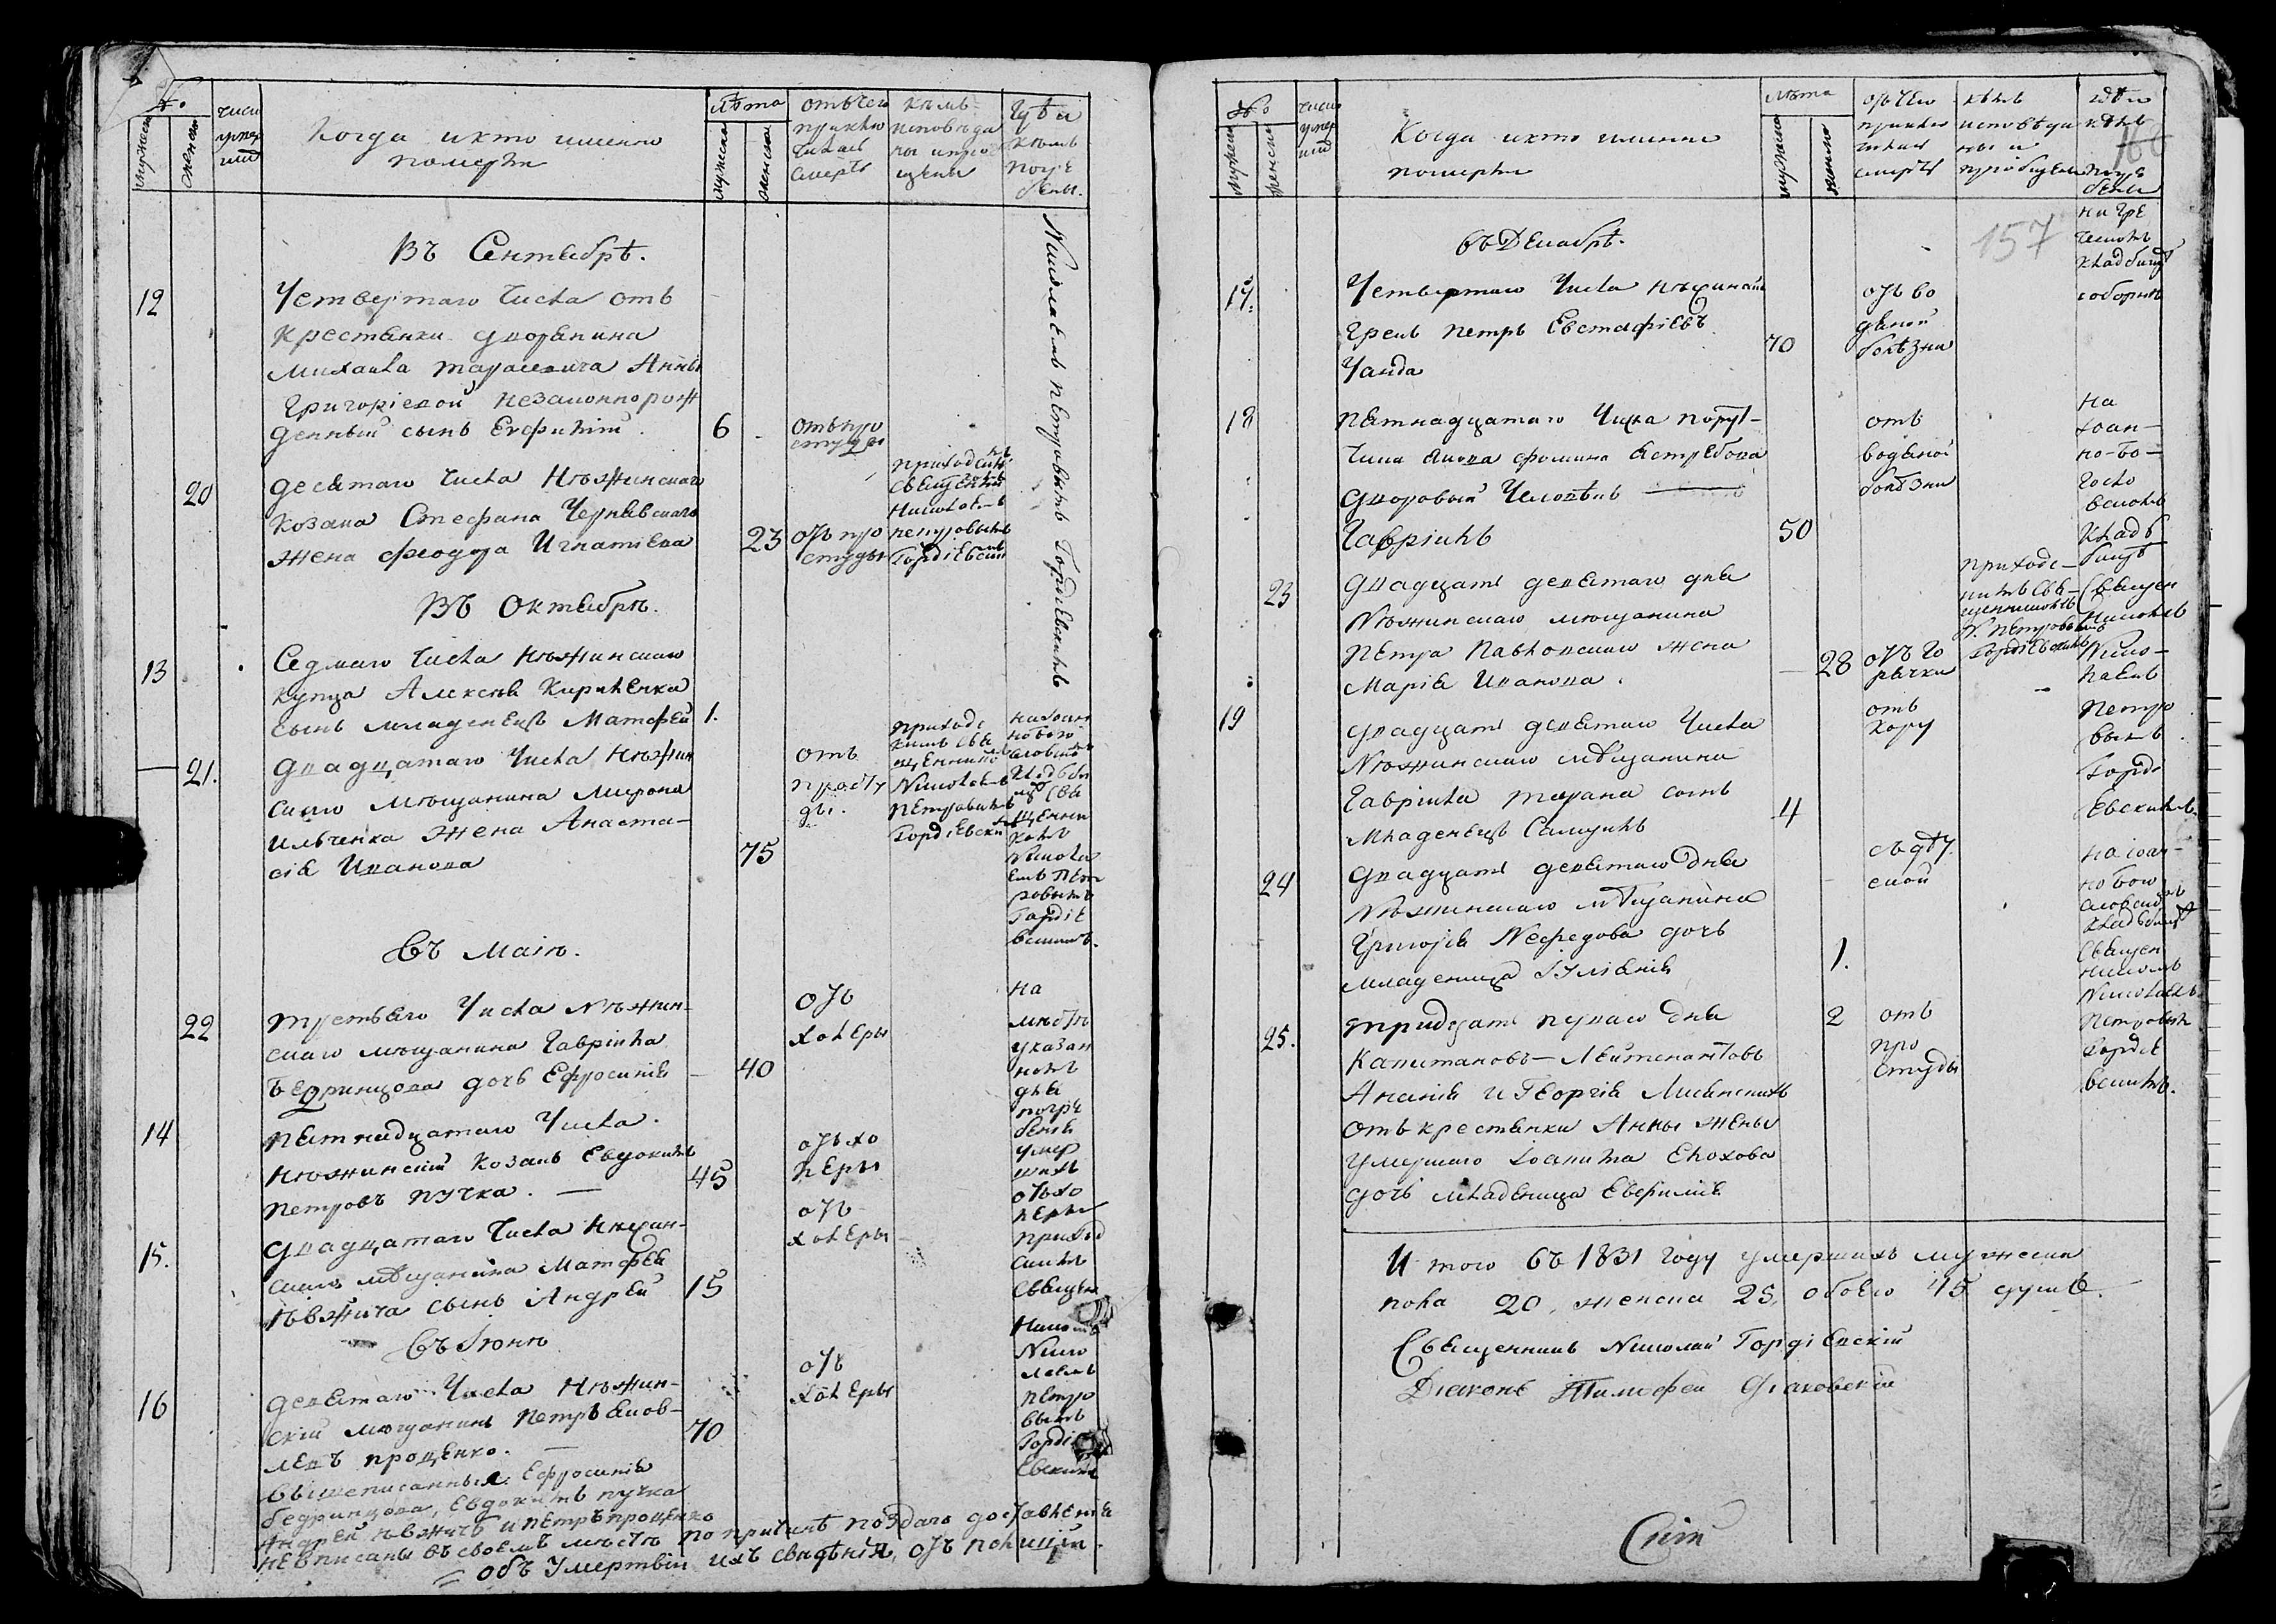 №
мужеска
женска
число
умер
ших
Когда и кто именно
померъ
лѣта
мужеска
женска
отъ чего
приклю
чилась
смерть
кѣмъ
исповѣда
ны и прі
щены
Гдѣ и
кѣмъ
погре
бены.
Въ Сентябрѣ.
12
Четвертаго Числа отъ
крестянки дворянина
Михаила Тарасевича Анны
Григоріевой незаконнорож
денный сынъ Евфилій
6
отъ про
студы
20
десятаго числа Нѣжинскаго
козака Стефана Чернявскаго
жена Феодора Игнатіева
23
отъ про
студы
приходскимъ
священни
Николаемъ
петровымъ
Гордіевским
Николаемъ Петровымъ Гордіевскимъ
Въ Октябрѣ.
13
Седмаго числа Нѣжинскаго
купца Алексѣя Кириленка
сынъ младенецъ Матфей
1.
21.
двадцатаго Числа Нѣжин
скаго мѣщанина Мирона
Ильченка жена Анаста-
сія Иванова
75
отъ
просту
ды.
приходс
кимъ свя
щенником
Николаемъ
Петровымъ
Гордіевски
на Іоан
нобого
словском
кладби
щѣ Свя
щенни
комъ
Никола
емъ Пет
ровымъ
Гордіе
вскимъ.
Въ Маіѣ.
22
третьяго Числа Нѣжин-
скаго мѣщанина Гавріила
Бедринцова дочь Ефросинія
40
отъ
холеры
на
мѣстѣ
указан
номъ
для
погре
бенія
умер
шихъ
отъ хо
леры
приход
скимъ
Священ
нико
Нико
лаемъ
Петро
вымъ
Гордіе
вскимъ
14
пятнадцатаго Числа.
Нѣжинскій козакъ Евдокимъ
Петровъ Пучка. —
45
отъ хо
леры
15.
двадцатаго числа Нѣжин-
скаго мѣщанина Матфея
сынъ Андрей
15
отъ
холеры
Въ Іюнѣ
16
девятаго Числа Нѣжин-
скій мѣщанинъ Петръ Яков-
левъ Проценко. —
70
отъ
холеры
вышеписанныя: Ефросинія
Бедринцова, Евдокимъ Пучка
Андрей и Петръ Проценко
невписаны въ своемъ мѣстѣ по причинѣ поздаго доставленія
объ умертвіи ихъ свидѣнія, отъ полиціи.
№
мужеска
женска
число
умер
ших
Когда и кто именно
померъ
лѣта
мужеска
женска
отъ чего
приклю
чилась
смерть
кѣмъ
исповѣда
ны и
пріобщены
гдѣ и
кѣмъ
погре
бены
157
въ Декабрѣ.
17.
Четвертаго Числа нѣжинскій
Грекъ Петръ Евстафіевъ
Чанда
70
отъ во
дяной
болѣзни
на гре
ческомъ
кладбищѣ
соборнѣ
18
пятнадцатаго Числа пору-
чика Якова Фомина Ястребова
дворовый Человѣкъ —
Гавріилъ
50
отъ
водяной
болѣзни
на
Іоан-
но-бо-
госло
вскомъ
кладб
бищѣ
Священ
никомъ
Нико-
лаемъ
Петро
вымъ
Гордіе
Евскимъ.
23
двадцать девятаго дня
Нѣжинскаго мѣщанина
Петра Павловскаго жена
Марія Иванова.
28
отъ го
рячки
приходс-
кимъ Свя-
щенникомъ
Н. Петровымъ
Гордіевскимъ
19
двадцать девятаго Числа
Нѣжинскаго мѣщанина
Гавріила Тарана сынъ
младенецъ Самуилъ
4
отъ
кору
24
двадцать девятаго Дня
Нѣжинскаго мѣщанина
Григорія Нефедова дочь
младеница Іуліанія
1.
съ дѣт
ской
на Іоан-
нобого
словском
кладбищѣ
Священ
никомъ
Николаемъ
Петровым
Гордіе
вскимъ.
25.
тридцать перваго дня
Капитановъ-Лейтенантовъ
Ананія и Георгія Лисянскихъ
отъ крестянки Анны жены
умершаго Іоанна Елохова
дочь младеница Евфимія
2
отъ
про
студы
И того въ 1831 году умершихъ мужеска
пола 20, женска 25, обоего 45 душъ.
Священникъ Николай Гордіевскій
Діаконъ Тимофей Діаковскій